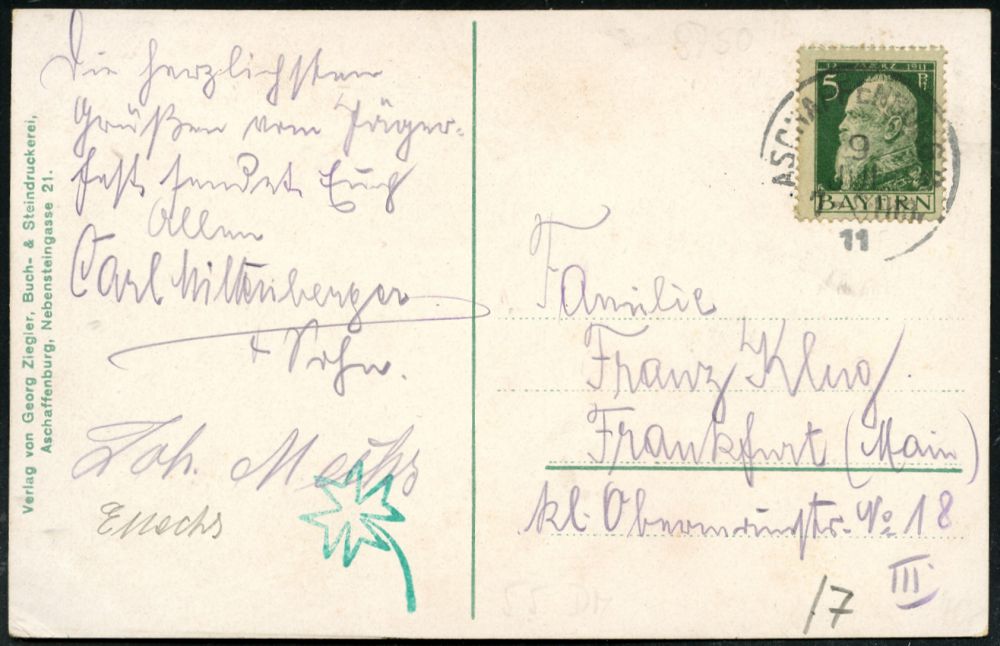 Verlag von Georg Ziegler, Buch- & Steindruckerei,
Aschaffenburg, Nebensteingasse 21.
Die herzlichsten
Grüßen vom Jäger-
fest sendet Euch
Allen
Carl Miltenberger
+ Sohn.
Joh.
12. MÄRZ 1911
5 Pf
BAYERN
9
11
Familie
Franz Klug.
Frankfurt (Main)
kl. Obermainstr. No 18
III
/7